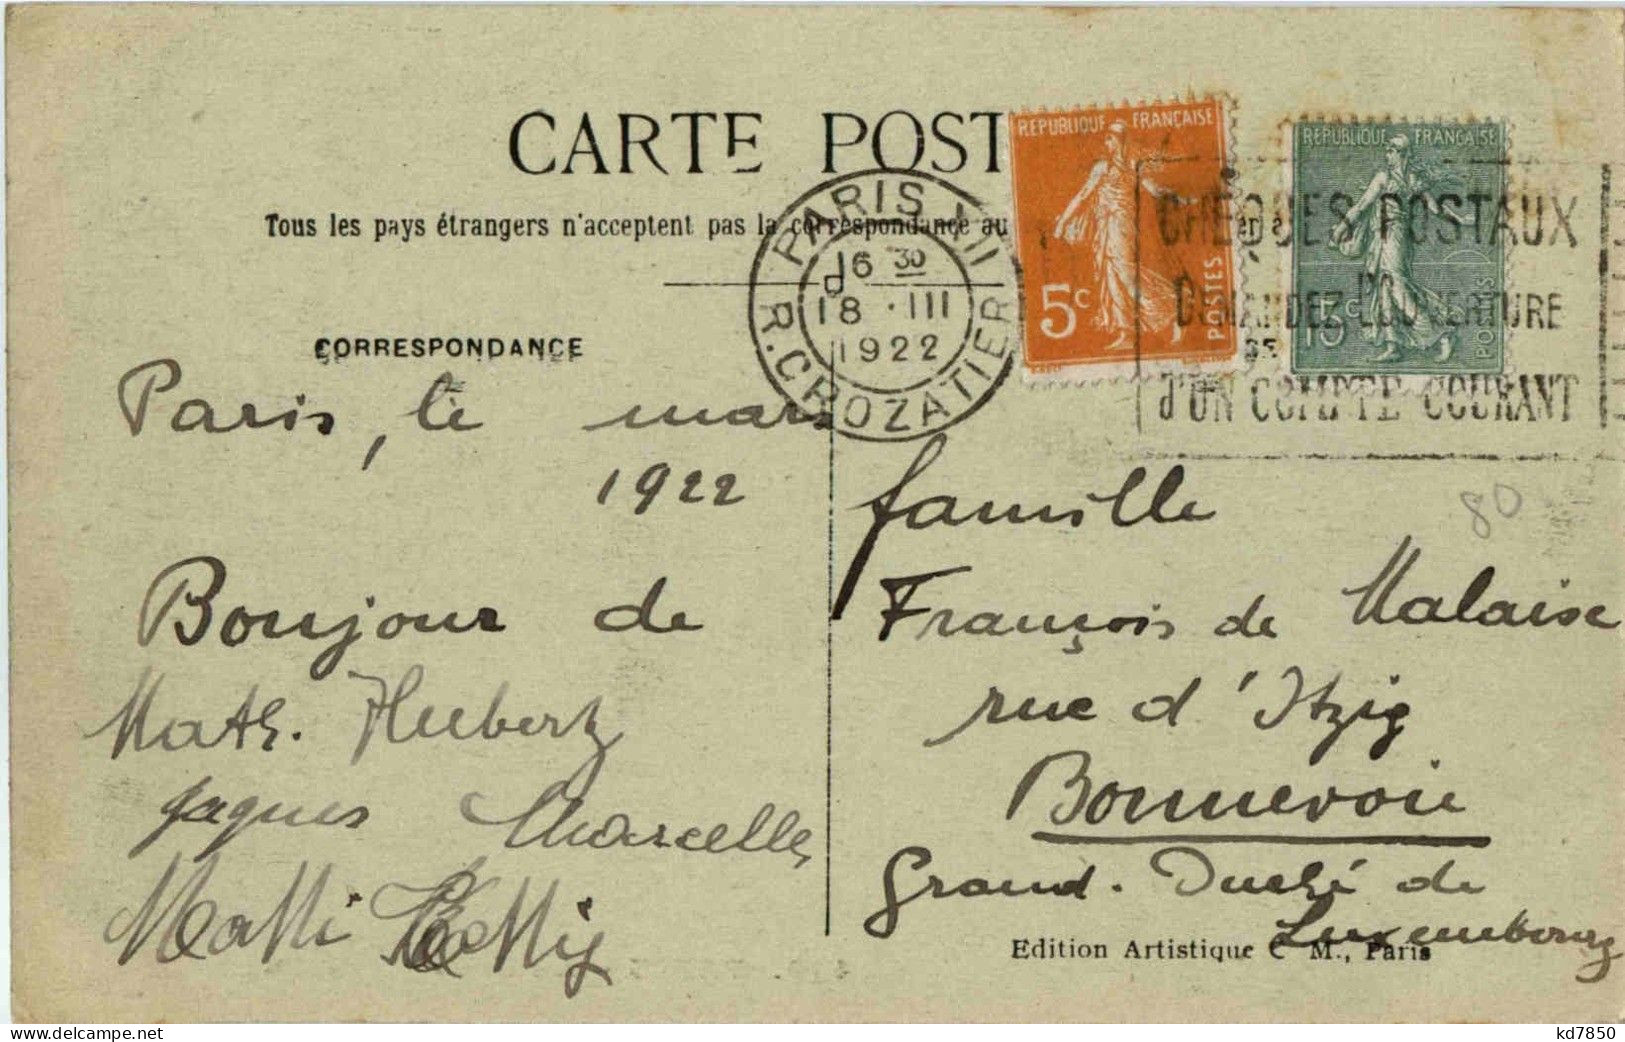 CARTE POST
RÉPUBLIQUE FRANÇAISE
5c
POSTES
RÉPUBLIQUE FRANÇAISE
15c
POSTES
Tous les pays étrangers n'acceptent pas la correspondance au
PARIS XII
16 30
18 · III
1922
R. CROZATIER
CHÈQUES POSTAUX
DEMANDEZ L'OUVERTURE
D'UN COMPTE COURANT
CORRESPONDANCE
Paris, le mars
1922
Bonjour de
Math. Hubertz
Jaques Marcelle
famille
François de Malaise
rue d'Itzig
Bonnevoie
Grand-Duché de
Luxembourg
80
Edition Artistique C M., Paris
kd7850